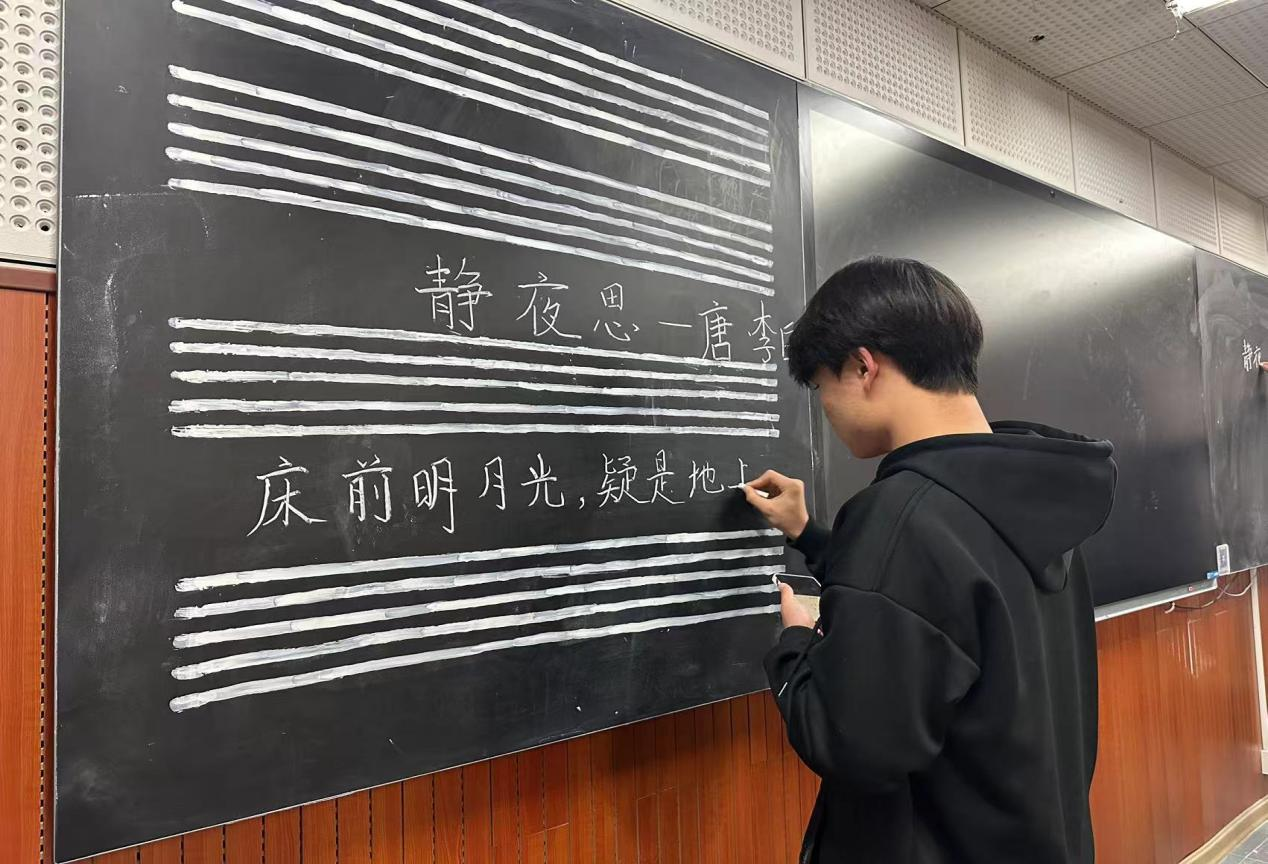 静夜思一唐李白
床前明月光,疑是地上
静夜